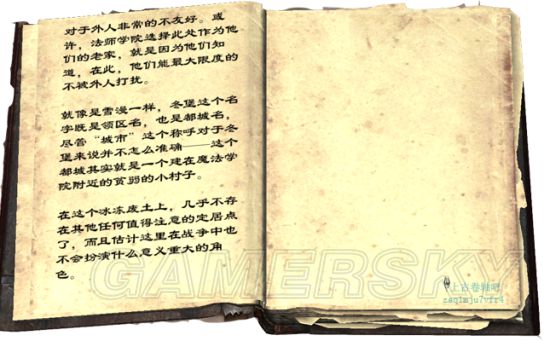 对于外人非常的不友好。或
许，法师学院选择此处作为他
们的老家，就是因为他们知
道，在此，他们能最大限度的
不被外人打扰。
就像是雪漫一样，冬堡这个名
字既是领区名，也是都城名，
尽管“城市”这个称呼对于冬
堡来说并不怎么准确——这个
都城其实就是一个建在魔法学
院附近的贫弱的小村子。
在这个冰冻废土上，几乎不存
在其他任何值得注意的定居点
了，而且估计这里在战争中也
不会扮演什么意义重大的角
色。
GAMERSKY
上古卷轴吧
zaq1mju7vfr4